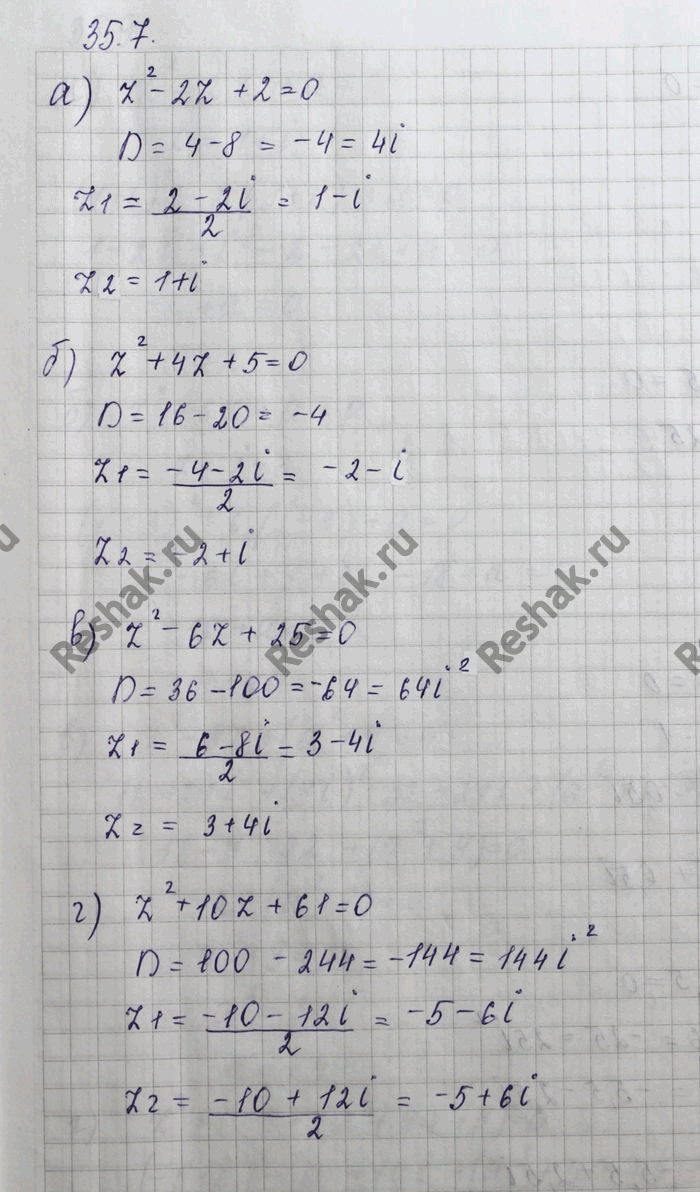 35.7.
а) z² - 2z + 2 = 0
D = 4 - 8 = -4 = 4i
z1 = (2 - 2i)/2 = 1 - i
z2 = 1 + i
б) z² + 4z + 5 = 0
D = 16 - 20 = -4
z1 = (-4 - 2i)/2 = -2 - i
z2 = -2 + i
в) z² - 6z + 25 = 0
D = 36 - 100 = -64 = 64i²
z1 = (6 - 8i)/2 = 3 - 4i
z2 = 3 + 4i
г) z² + 10z + 61 = 0
D = 100 - 244 = -144 = 144i²
z1 = (-10 - 12i)/2 = -5 - 6i
z2 = (-10 + 12i)/2 = -5 + 6i
Reshak.ru
Reshak.ru
Reshak.ru